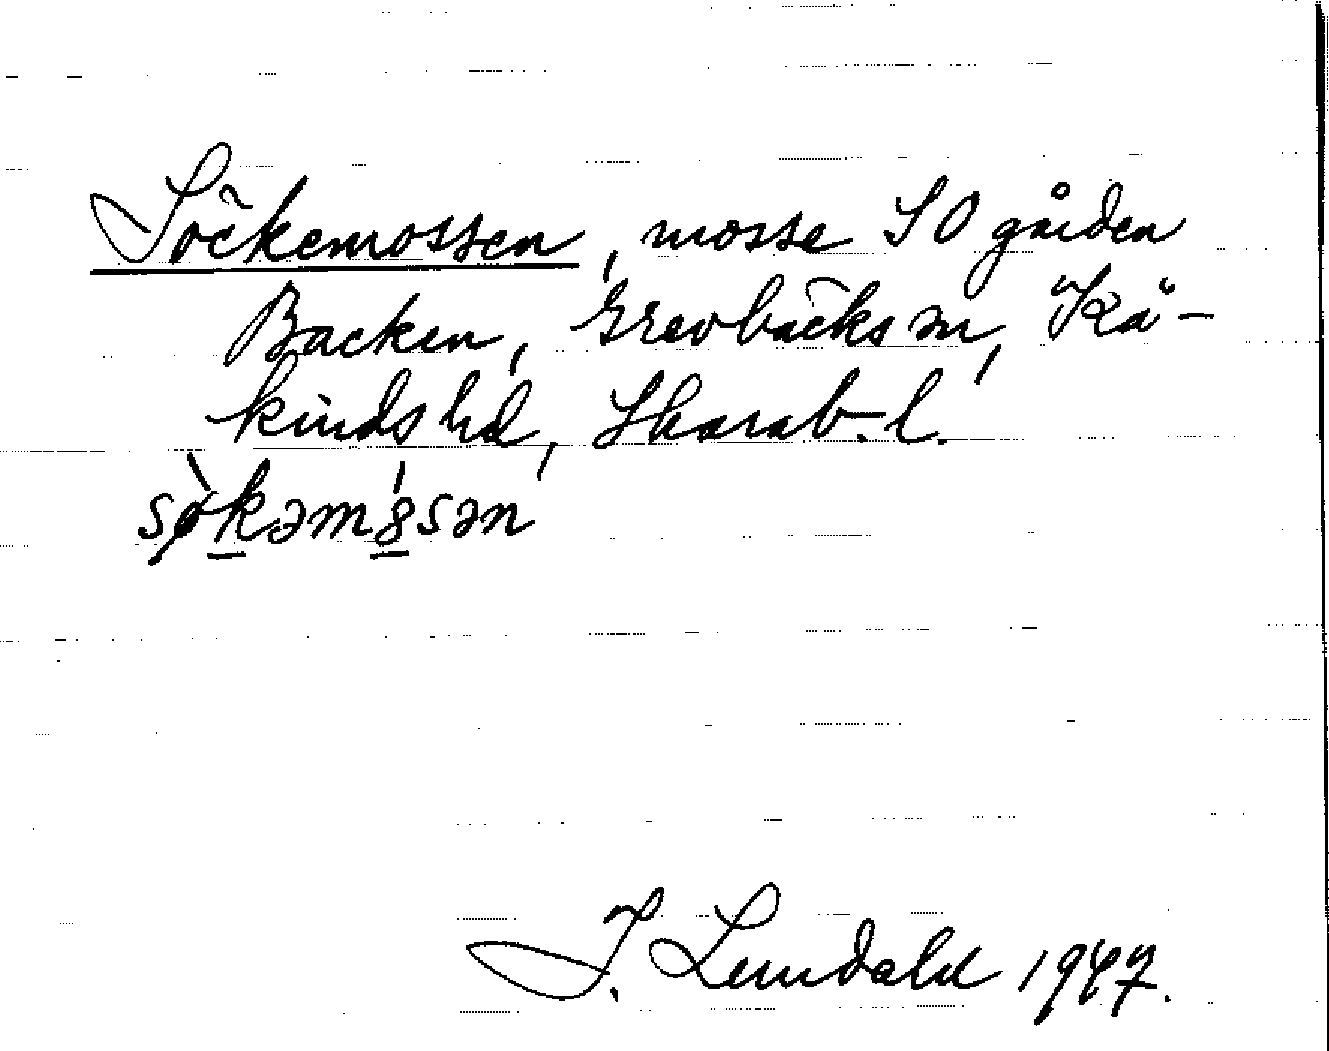 Söckemossen, mosse SO gården
Backen, Grevbäcks sn, Kå-
kinds hd, Skarab. l.
sø̀kəmȣ́sən
I. Lundahl 1947.